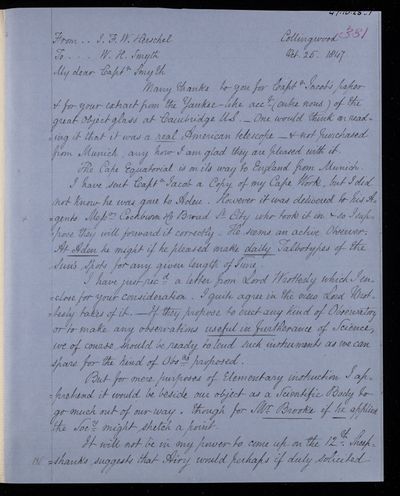 From .. J. F. W. Herschel Collingwood 351
To . . . W. H. Smyth Oct. 25. 1847
My dear Capt.n Smyth
Many thanks to you for Capt.n Jacob's paper
& for your extract from the Yankee-like acc.t (entre nous) of the
great object glass at Cambridge U.S. — One would think on read-
-ing it that it was a real American telescope — & not purchased
from Munich, any how I am glad they are pleased with it.
The Cape Equatorial is on its way to England from Munich.
I have sent Capt.n Jacob a Copy of my Cape Work, but I did
not know he was gone to Aden. However it was delivered to his A-
-gents Mess.rs Cockburn Broad St. City who took it in & so I sup-
-pose they will forward it correctly. He seems an active Observer.
At Aden he might if he pleased make daily Talbotypes of the
Sun's Spots for any given length of Time.
I have just rec.d a letter from Lord Wrottesly which I en-
-close for your consideration. I quite agree in the view Lord Wrot-
-tesly takes of it. — If they propose to erect any kind of Observatory
or to make any observations useful in furtherance of Science,
we of course should be ready to lend such instruments as we can
spare for the kind of Obs.ns proposed.
But for mere purposes of Elementary instruction I ap-
-prehend it would be beside our object as a Scientific Body to
go much out of our way. though for Mr. Brooke if he applies
the Soc.y might stretch a point.
It will not be in my power to come up on the 12.th Sheep-
-shanks suggests that Airy would perhaps if duly solicited